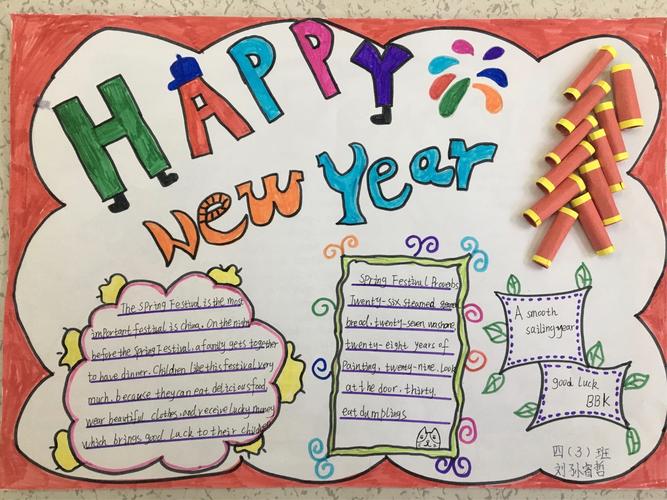 HAPPY
New Year
The Spring Festival is the most
important festival is china. On the night
before the Spring Festival, a family gets together
to have dinner. Children like this festival very
much, because they can eat delicious food,
wear beautiful clothes, and receive lucky money
which brings good luck to their children
Spring Festival Proverbs
Twenty-six steamed
bread. twenty-seven
twenty-eight years of
Painting, twenty-nine. Look
at the door. thirty.
eat dumplings
A smooth
sailing year
good luck
BBK
四(3)班
刘孙睿哲